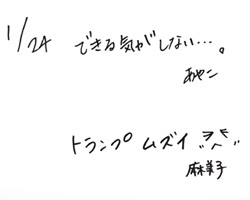 1/24 できる気がしない…。
あやこ
トランプ ムズイ
麻美子